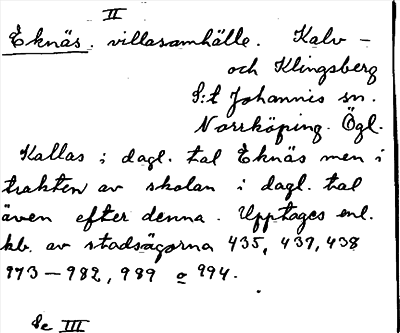 II
Eknäs. villasamhälle. Kalv -
och Klingsberg
S:t Johannis sn.
Norrköping. Ögl.
Kallas i dagl. tal Eknäs men i
trakten av skolan i dagl. tal
även efter denna. Upptages enl.
kb. av stadsägorna 435, 437, 438
973 - 982, 989 o 994.
Se III